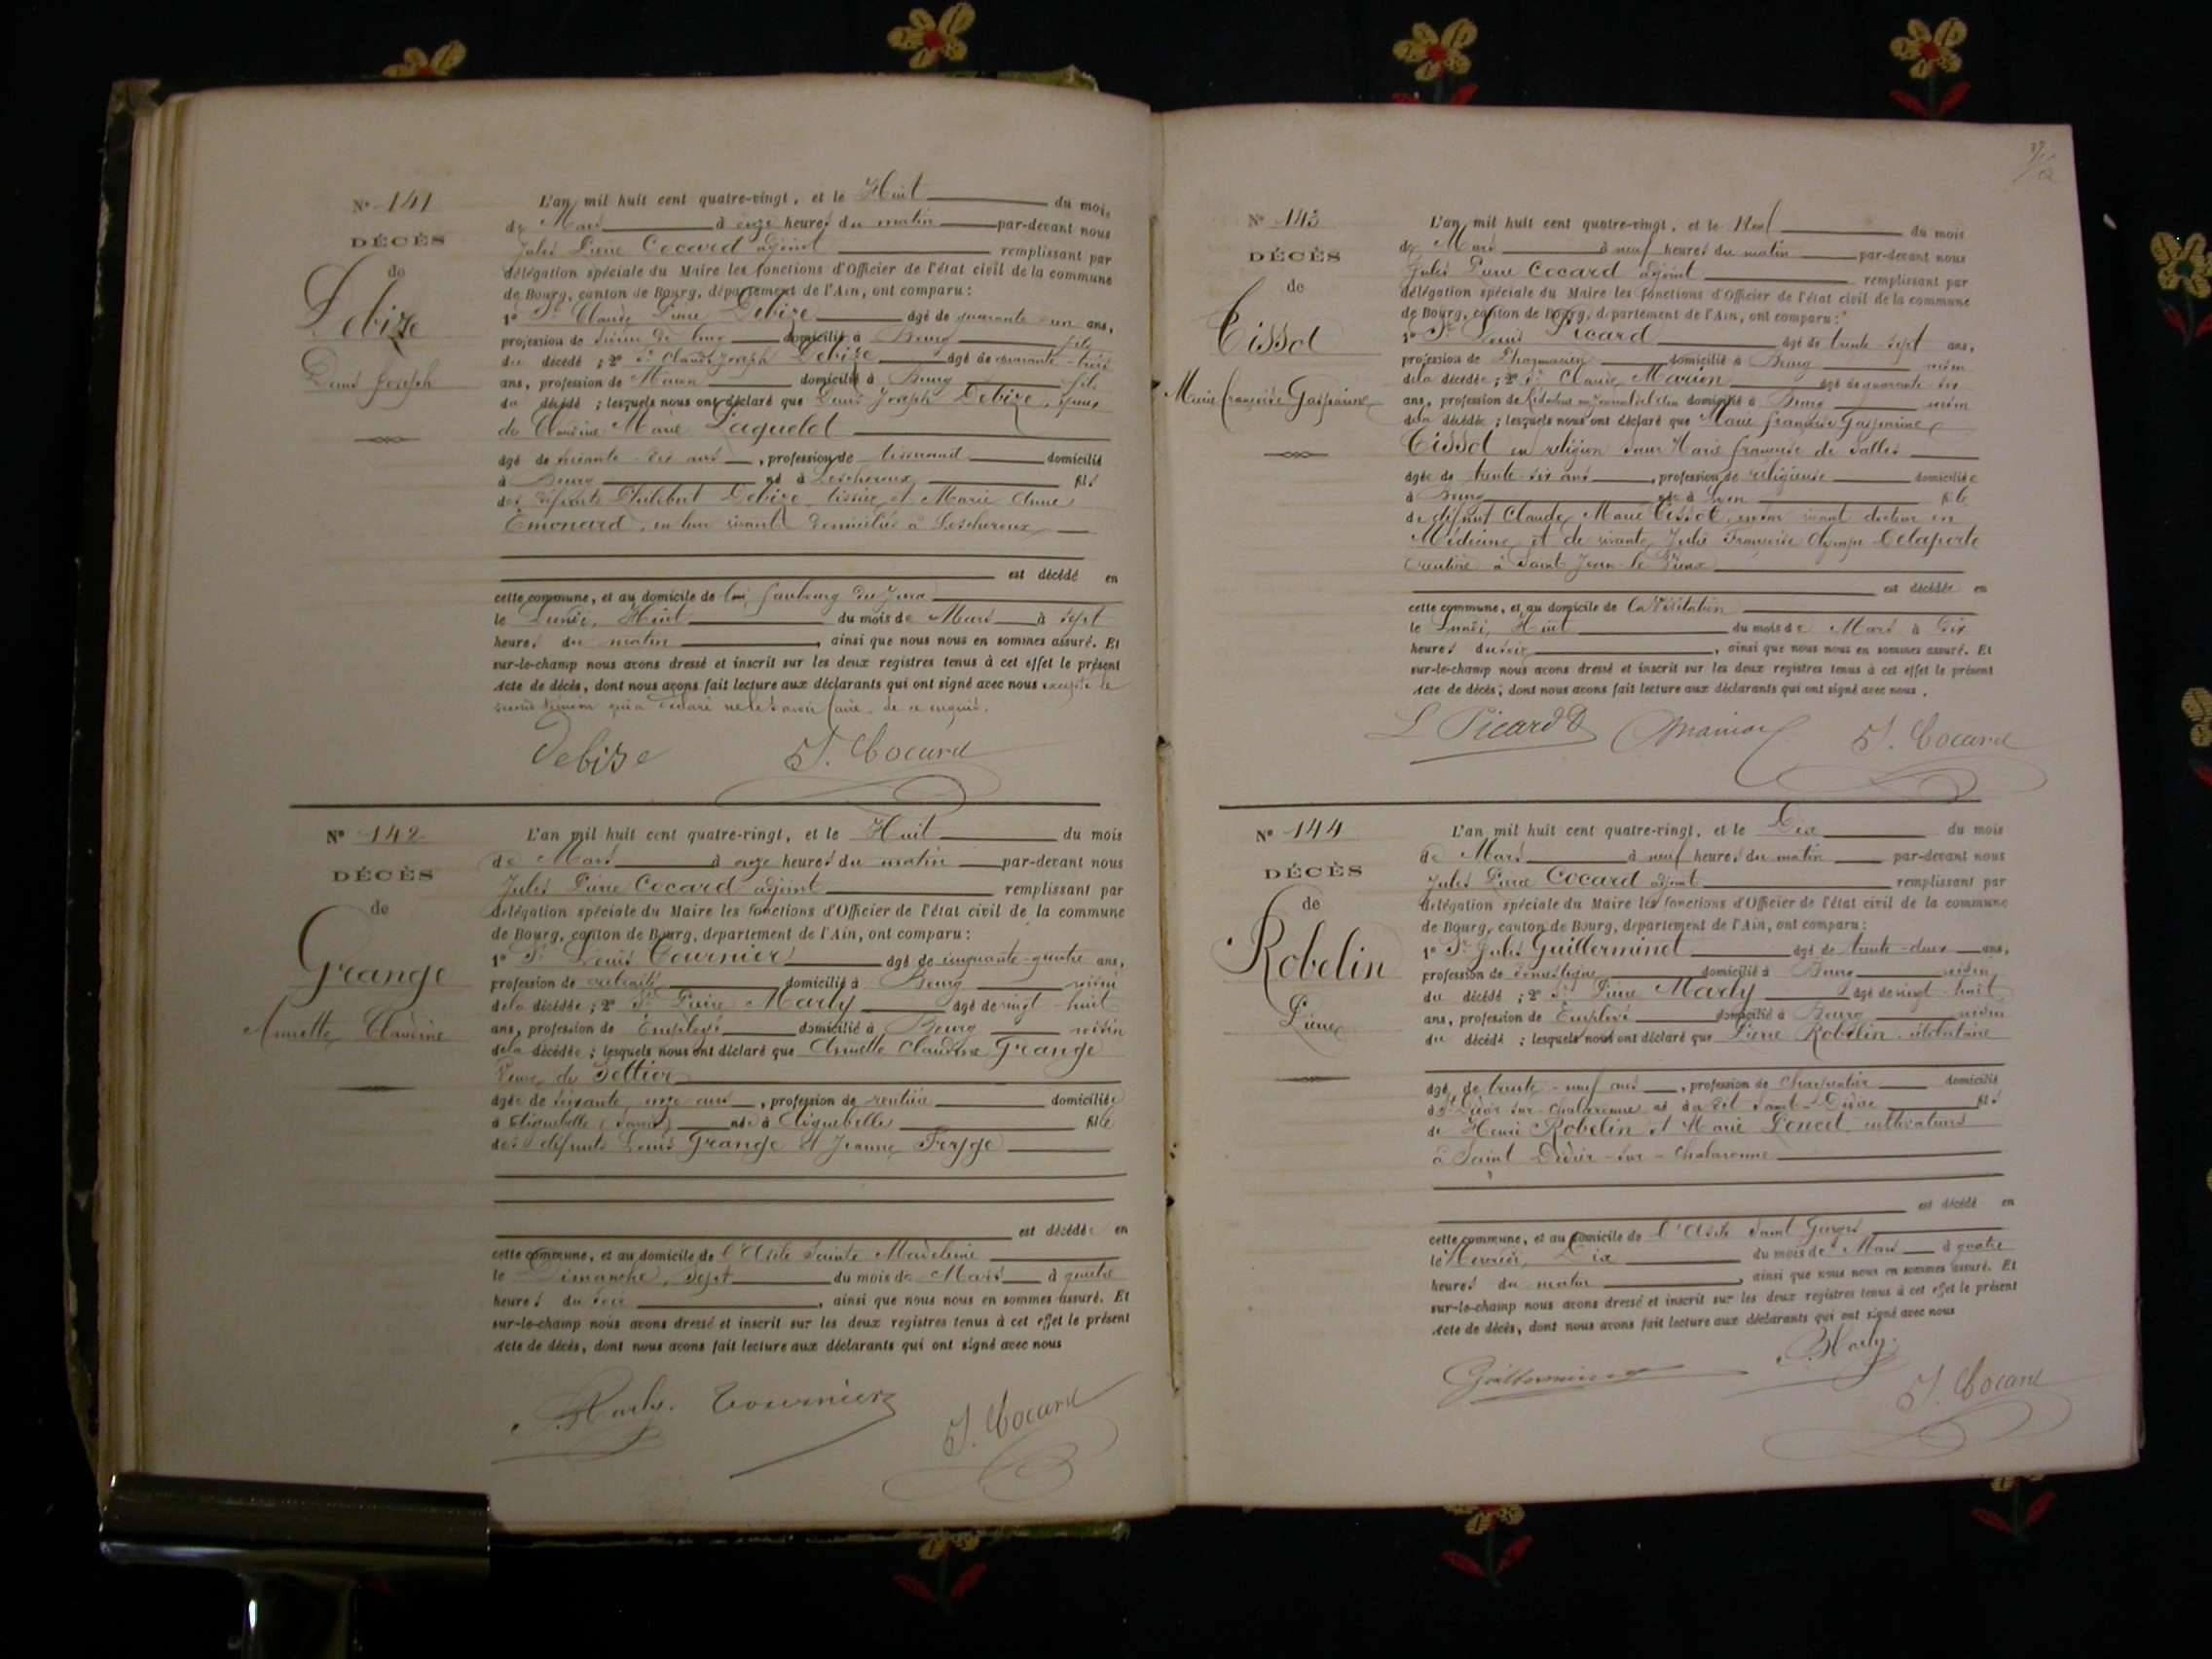 N° 141
DÉCÈS
de
Debize
Denis Joseph
L'an mil huit cent quatre-vingt, et le Huit du mois
de Mars à onze heures du matin par-devant nous
Jules Pierre Cocard adjoint remplissant par
délégation spéciale du Maire les fonctions d'Officier de l'état civil de la commune
de Bourg, canton de Bourg, département de l'Ain, ont comparu :
1° Sr Claude Pierre Debize âgé de quarante un ans,
profession de domicilié à Bourg fils
du décédé ; 2° Sr Claude Joseph Debize âgé de trois
ans, profession de Maçon domicilié à Bourg fils
du décédé ; lesquels nous ont déclaré que Denis Joseph Debize, époux
de Claudine Marie Laguelet
âgé de soixante dix ans, profession de tisserand domicilié
à Bourg né à Lescheroux fils
des défunts Philibert Debize et Marie Anne
Emonard, en leur vivant domiciliés à Lescheroux
est décédé en
cette commune, et au domicile de lui, faubourg du Jura
le Lundi, Huit du mois de Mars à sept
heures du matin, ainsi que nous nous en sommes assuré. Et
sur-le-champ nous avons dressé et inscrit sur les deux registres tenus à cet effet le présent
Acte de décès, dont nous avons fait lecture aux déclarants qui ont signé avec nous excepté le
second témoin qui a déclaré ne le savoir faire de ce enquis.
Debise J. Cocard
N° 142
DÉCÈS
de
Grange
Annette Claudine
L'an mil huit cent quatre-vingt, et le Huit du mois
de Mars à onze heures du matin par-devant nous
Jules Pierre Cocard adjoint remplissant par
délégation spéciale du Maire les fonctions d'Officier de l'état civil de la commune
de Bourg, canton de Bourg, département de l'Ain, ont comparu :
1° Sr Louis Tournier âgé de cinquante-quatre ans,
profession de retraité domicilié à Bourg voisin
de la décédée ; 2° Sr Pierre Marly âgé de vingt-huit
ans, profession de Employé domicilié à Bourg voisin
de la décédée ; lesquels nous ont déclaré que Annette Claudine Grange
Veuve de Settier
âgée de soixante onze ans, profession de rentière domiciliée
à Aiguebelle (Savoie) née à Aiguebelle fille
des défunts Louis Grange et Jeanne
est décédée en
cette commune, et au domicile de l'Asile Sainte Madeleine
le Dimanche, sept du mois de Mars à quatre
heures du soir, ainsi que nous nous en sommes assuré. Et
sur-le-champ nous avons dressé et inscrit sur les deux registres tenus à cet effet le présent
Acte de décès, dont nous avons fait lecture aux déclarants qui ont signé avec nous
P. Marly. Tournier J. Cocard
N° 143
DÉCÈS
de
Tissot
Marie Françoise Gasparine
L'an mil huit cent quatre-vingt, et le Neuf du mois
de Mars à neuf heures du matin par-devant nous
Jules Pierre Cocard adjoint remplissant par
délégation spéciale du Maire les fonctions d'Officier de l'état civil de la commune
de Bourg, canton de Bourg, département de l'Ain, ont comparu :
1° Sr Louis Picard âgé de trente-sept ans,
profession de Pharmacien domicilié à Bourg voisin
de la décédée ; 2° Sr Claude Marion âgé de quarante six
ans, profession de Rédacteur au Journal de l'Ain domicilié à Bourg voisin
de la décédée ; lesquels nous ont déclaré que Marie Françoise Gasparine
Tissot en religion sœur Marie Françoise de Salles
âgée de trente-six ans, profession de religieuse domiciliée
à Bourg née à Lyon fille
de défunt Claude Marie Tissot, en son vivant docteur en
Médecine et de vivante Julie Françoise Olympe Delaporte
rentière à Saint Jean-le-Vieux
est décédée en
cette commune, et au domicile de la Visitation
le Lundi, Huit du mois de Mars à dix
heures du soir, ainsi que nous nous en sommes assuré. Et
sur-le-champ nous avons dressé et inscrit sur les deux registres tenus à cet effet le présent
Acte de décès, dont nous avons fait lecture aux déclarants qui ont signé avec nous.
L Picard J. Cocard
N° 144
DÉCÈS
de
Robelin
Pierre
L'an mil huit cent quatre-vingt, et le Dix du mois
de Mars à neuf heures du matin par-devant nous
Jules Pierre Cocard adjoint remplissant par
délégation spéciale du Maire les fonctions d'Officier de l'état civil de la commune
de Bourg, canton de Bourg, département de l'Ain, ont comparu :
1° Sr Jules Guilleminet âgé de trente-deux ans,
profession de domestique domicilié à Bourg voisin
du décédé ; 2° Sr Pierre Marly âgé de vingt-huit
ans, profession de Employé domicilié à Bourg voisin
du décédé ; lesquels nous ont déclaré que Pierre Robelin, célibataire
âgé de trente-neuf ans, profession de Charpentier domicilié
à St Didier-sur-Chalaronne né au dit Saint-Didier fils
de Henri Robelin et Marie Poncet, cultivateurs
à Saint Didier-sur-Chalaronne
est décédé en
cette commune, et au domicile de l'Asile Saint Georges
le Mercredi, Dix du mois de Mars à quatre
heures du matin, ainsi que nous nous en sommes assuré. Et
sur-le-champ nous avons dressé et inscrit sur les deux registres tenus à cet effet le présent
Acte de décès, dont nous avons fait lecture aux déclarants qui ont signé avec nous
P. Marly.
J. Cocard